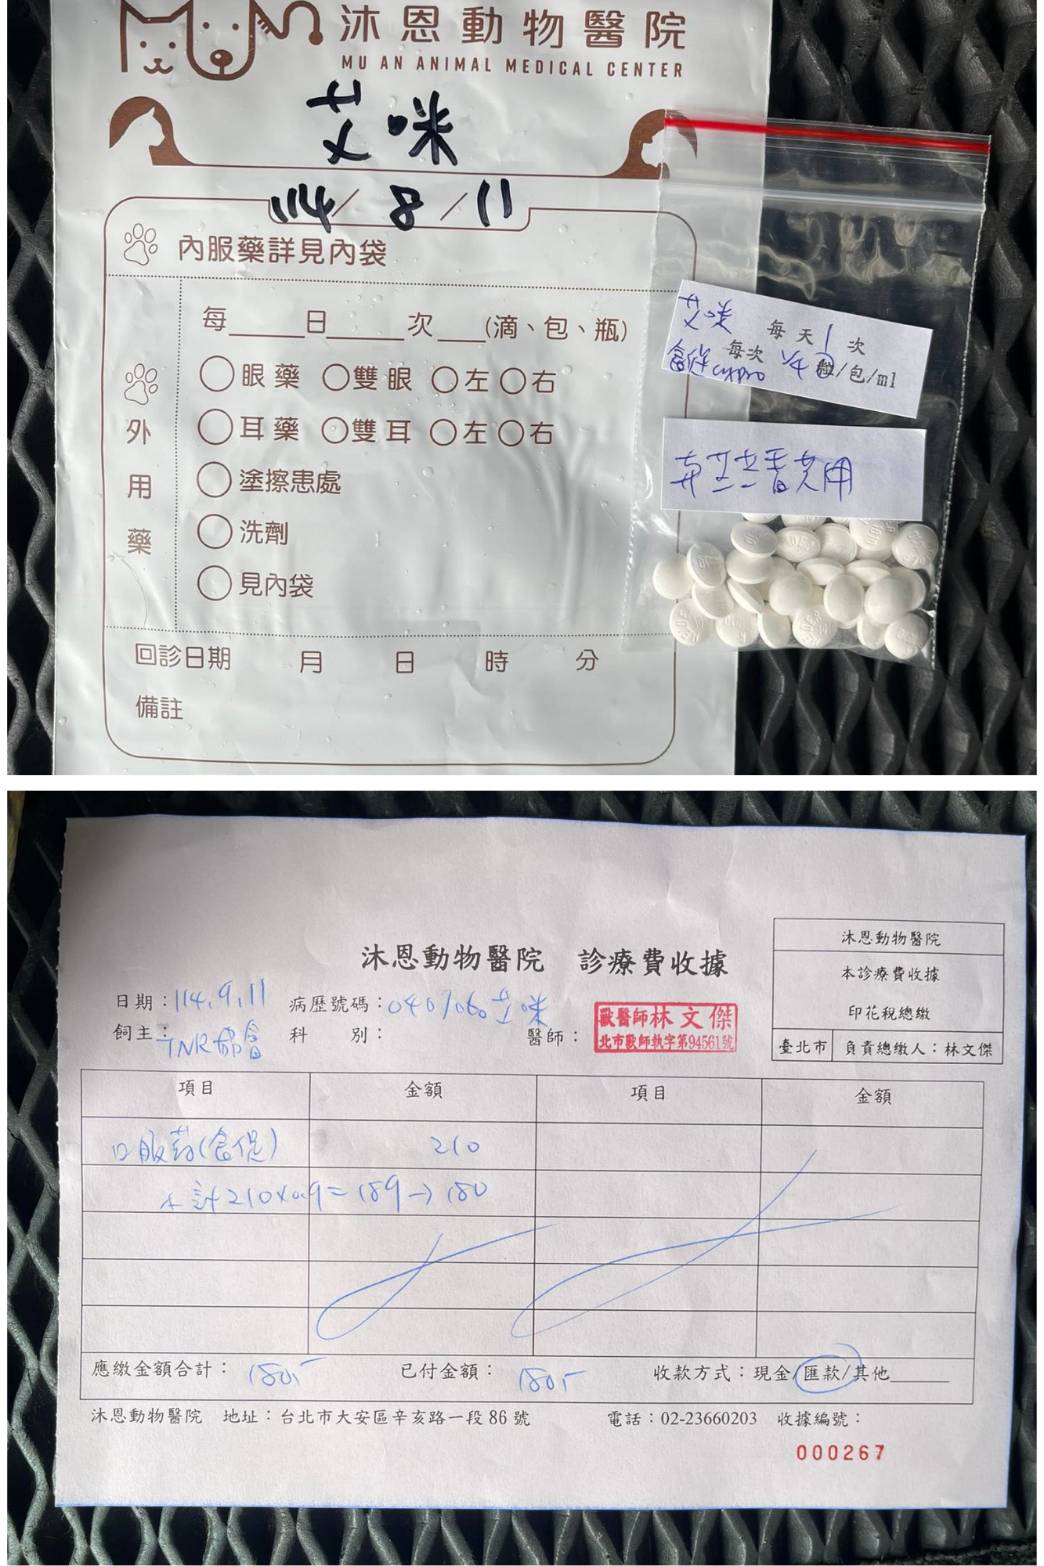 沐恩動物醫院
MU AN ANIMAL MEDICAL CENTER
艾咪
114/8/11
內服藥詳見內袋
每____日____次___(滴、包、瓶)
眼藥 雙眼 左 右
耳藥 雙耳 左 右
外用藥
塗擦患處
洗劑
見內袋
回診日期 月 日 時 分
備註
艾咪 每天1次
每次 1/4 顆/包/ml
沐恩動物醫院 診療費收據
沐恩動物醫院
本診療費收據
印花稅總繳
臺北市 負責總繳人：林文傑
日期：114.9.11 病歷號碼：0401060艾咪
飼主：TNR協會 科 別： 醫師：
獸醫師林文傑
北市獸師執字第94561號
項目 金額 項目 金額
口服葯(食慾) 210
小計210x0.9=189→180
應繳金額合計：180.- 已付金額：180.- 收款方式：現金/匯款/其他______
沐恩動物醫院 地址：台北市大安區辛亥路一段86號 電話：02-23660203 收據編號：
000267